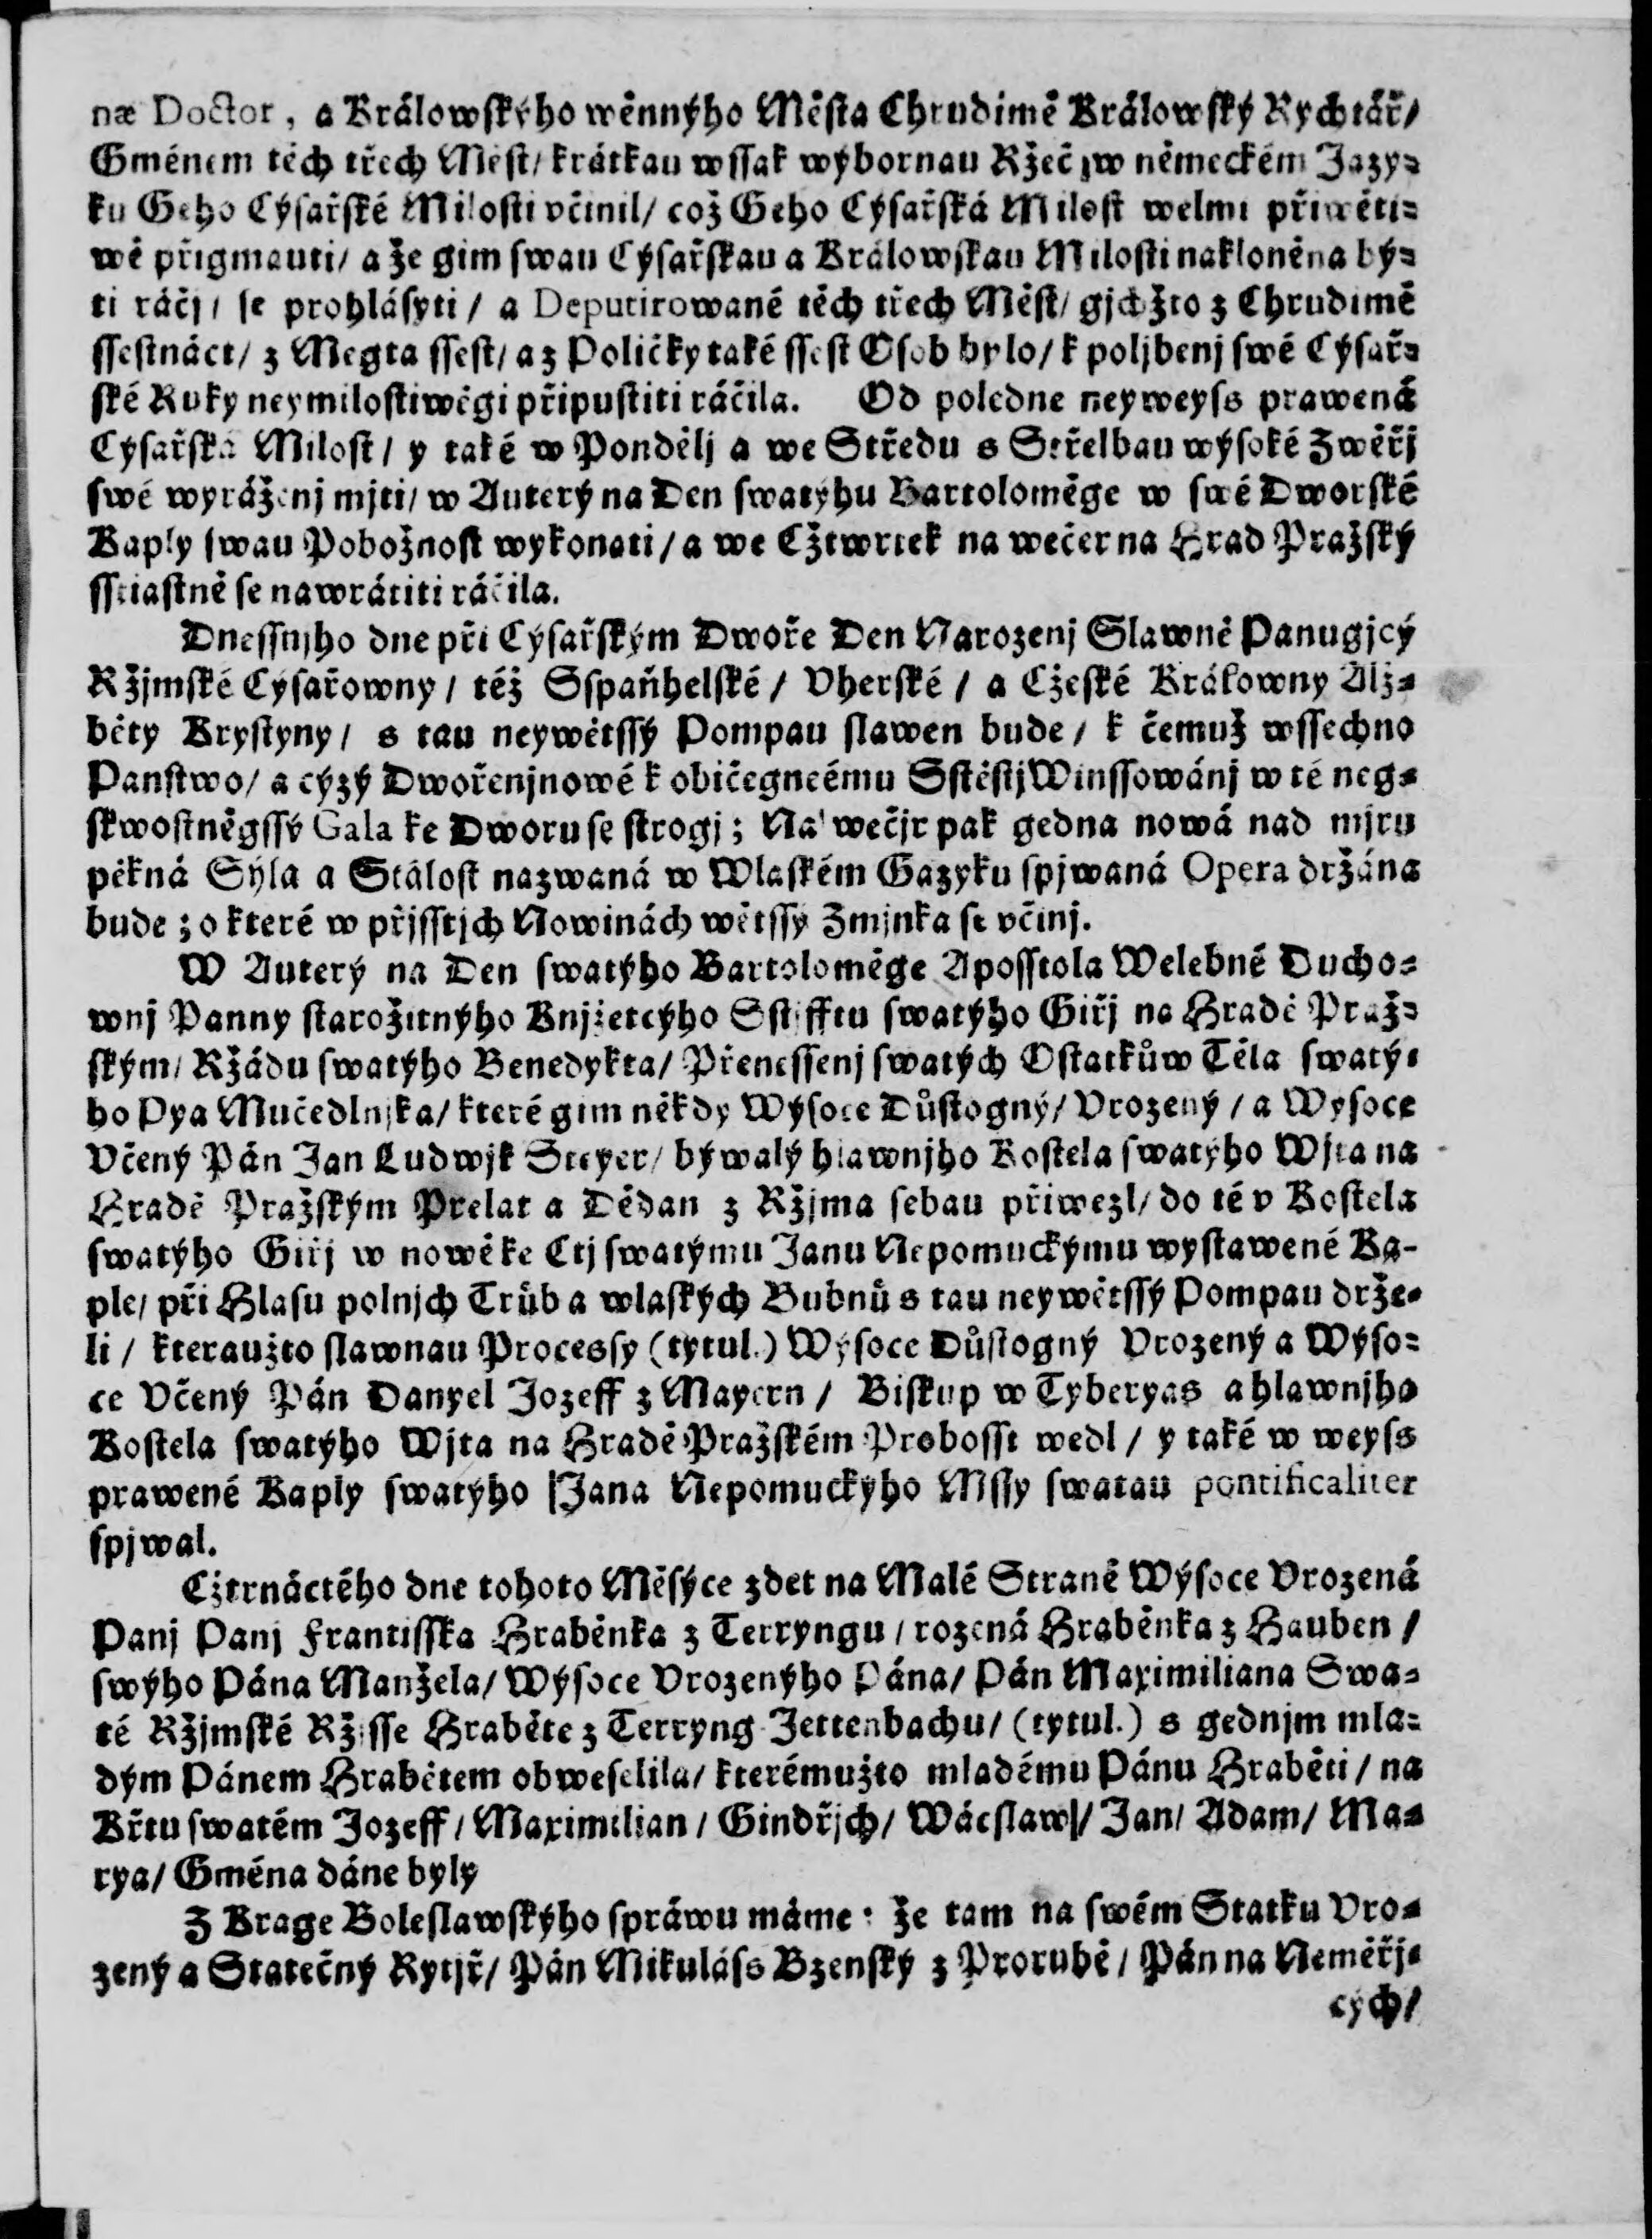 næ Doctor, a Králowſkýho wěnnýho Měſta Chrudimě Králowſký Rychtář/
Gménem těch třech Měſt/ krátkau wſſak wýbornau Ržeč / w německém Jazy⸗
ku Geho Cýſařſké Miloſti včinil/ což Geho Cýſařſká Miloſt welmi přiwěti⸗
wě přigmauti/ a že gim ſwau Cýſařſkau a Králowſkau Miloſti nakloněna bý⸗
ti ráčj/ ſe prohláſyti / a Deputirowané těch třech Měſt/ gichžto z Chrudimě
ſſeſtnáct/ z Megta ſſeſt/ a z Poličky také ſſeſt Oſob bylo/ k poljbenj ſwé Cýſař⸗
ſké Ruky neymiloſtiwěgi připuſtiti ráčila. Od poledne neyweyſs prawená
Cyſařſká Miloſt/ y také w Pondělj a we Středu s Střelbau wýſoké Zwěřj
ſwé wyráženj mjti/ w Auterý na Den ſwatýhu Bartoloměge w ſwé Dworſké
Kaply ſwau Pobožnoſt wykonati/ a we Cžtwrtek na wečer na Hrad Pražſký
ſſtiaſtně ſe nawrátiti ráčila.
Dneſſnjho dne při Cýſařſkým Dwoře Den Narozenj Slawně Panugjcý
Ržjmſké Cýſařowny / též Sſpaňhelſké / Vherſké / a Cžeſké Králowny Alž⸗
běty Kryſtyny/ s tau neywětſſý Pompau ſlawen bude/ k čemuž wſſechno
Panſtwo/ a cýzý Dwořenjnowé k običegneému Sſtěſtj Winſſowánj w té neg⸗
ſkwoſtněgſſý Gala ke Dworu ſe ſtrogj; Na wečjr pak gedna nowá nad mjru
pěkná Sýla a Stáloſt nazwaná w Wlaſkém Gazyku ſpjwaná Opera držána
bude; o které w přjſſtjch Nowinách wětſſý Zmjnka ſe včinj.
W Auterý na Den ſwatýho Bartoloměge Apoſſtola Welebné Ducho⸗
wnj Panny ſtarožitnýho Knjžetcýho Sſtifftu ſwatýho Giřj na Hradě Praž⸗
ſkým/ Ržádu ſwatýho Benedykta/ Přeneſſenj ſwatých Oſtatkůw Těla ſwatý⸗
ho Pya Mučedlnjka/ které gim někdy Wýſoce Důſtogný/ Vrozený / a Wyſoce
Včený Pán Jan Ludwjk Steyer/ býwalý hlawnjho Koſtela ſwatýho Wjta na
Hradě Pražſkým Prelat a Děďan z Ržjma ſebau přiwezl/ do té v Koſtela
ſwatýho Giřj w nowě ke Ctj ſwatýmu Janu Nepomuckýmu wyſtawené Ka-
ple/ při Hlaſu polnjch Trůb a wlaſkých Bubnů s tau neywětſſý Pompau drže⸗
li / kteraužto ſlawnau Proceſſy (tytul.) Wýſoce Důſtogný Vrozený a Wýſo⸗
ce Včený Pán Danyel Jozeff z Mayern / Biſkup w Tyberyas a hlawnjho
Koſtela ſwatýho Wjta na Hradě Pražſkém Proboſſt wedl / y také w weyſs
prawené Kaply ſwatýho Jana Nepomuckýho Mſſy ſwatau pontificaliter
ſpjwal.
Cžtrnáctého dne tohoto Měſýce zdet na Malé Straně Wýſoce Vrozená
Panj Panj Frantiſſka Hraběnka z Terryngu / rozená Hraběnka z Hauben /
ſwýho Pána Manžela/ Wýſoce Vrozenýho Pána/ Pán Maximiliana Swa⸗
té Ržjmſké Ržjſſe Hraběte z Terryng Jettenbachu/ (tytul.) s gednjm mla⸗
dým Pánem Hrabětem obweſelila/ kterémužto mladému Pánu Hraběti / na
Křtu ſwatém Jozeff/ Maximilian / Gindřjch/ Wácſlaw/ Jan/ Adam/ Ma⸗
rya/ Gména dáne byly
Z Krage Boleſlawſkýho ſpráwu máme: že tam na ſwém Statku Vro⸗
zený a Statečný Rytjř/ Pán Mikuláſs Bzenſký z Prorubě / Pán na Neměřj⸗
cých/